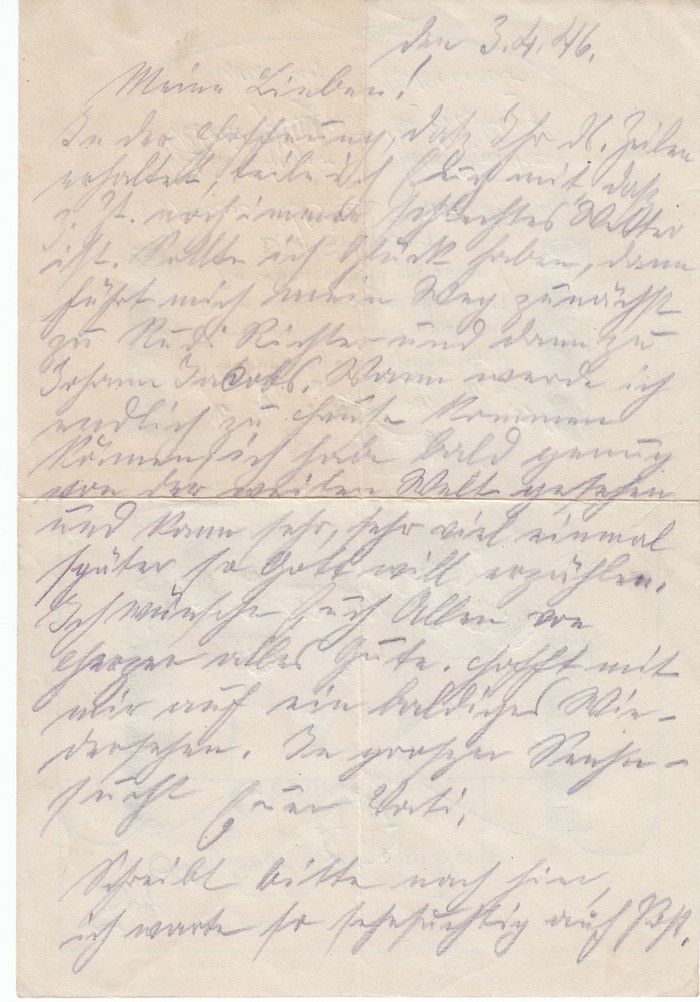 den 3.4.46.
Meine Lieben!
In der Hoffnung, daß Ihr d. Zeilen
erhaltet, teile ich Euch mit, daß
z. Zt. noch immer schlechtes Wetter
ist. Sollte ich Glück haben, dann
führt mich mein Weg zunächst
zu Rudi Richter und dann zu
Johann Jacobs. Wann werde ich
endlich zu Hause kommen
können, ich habe bald genug
von der weiten Welt gesehen
und kann sehr, sehr viel einmal
später so Gott will erzählen.
Ich wünsche Euch Allen von
Herzen alles Gute. Hofft mit
mir auf ein baldiges Wie-
dersehen. In großer Sehn-
sucht Euer Vati.
Schreibt bitte nach hier,
ich warte so sehnsüchtig auf Post.